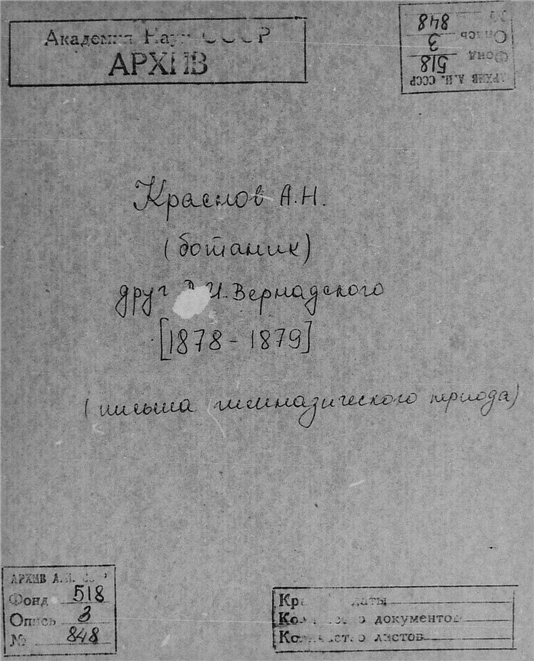 Академия Наук СССР
АРХИВ
АРХИВ А.Н. СССР
Фонд 518
Опись 3
№ 848
Краснов А.Н.
(ботаник)
друг В.И. Вернадского
[1878 - 1879]
(письма гимназического периода)
АРХИВ А.Н. СССР
Фонд 518
Опись 3
№ 848
даты
Количество документов
Количество листов